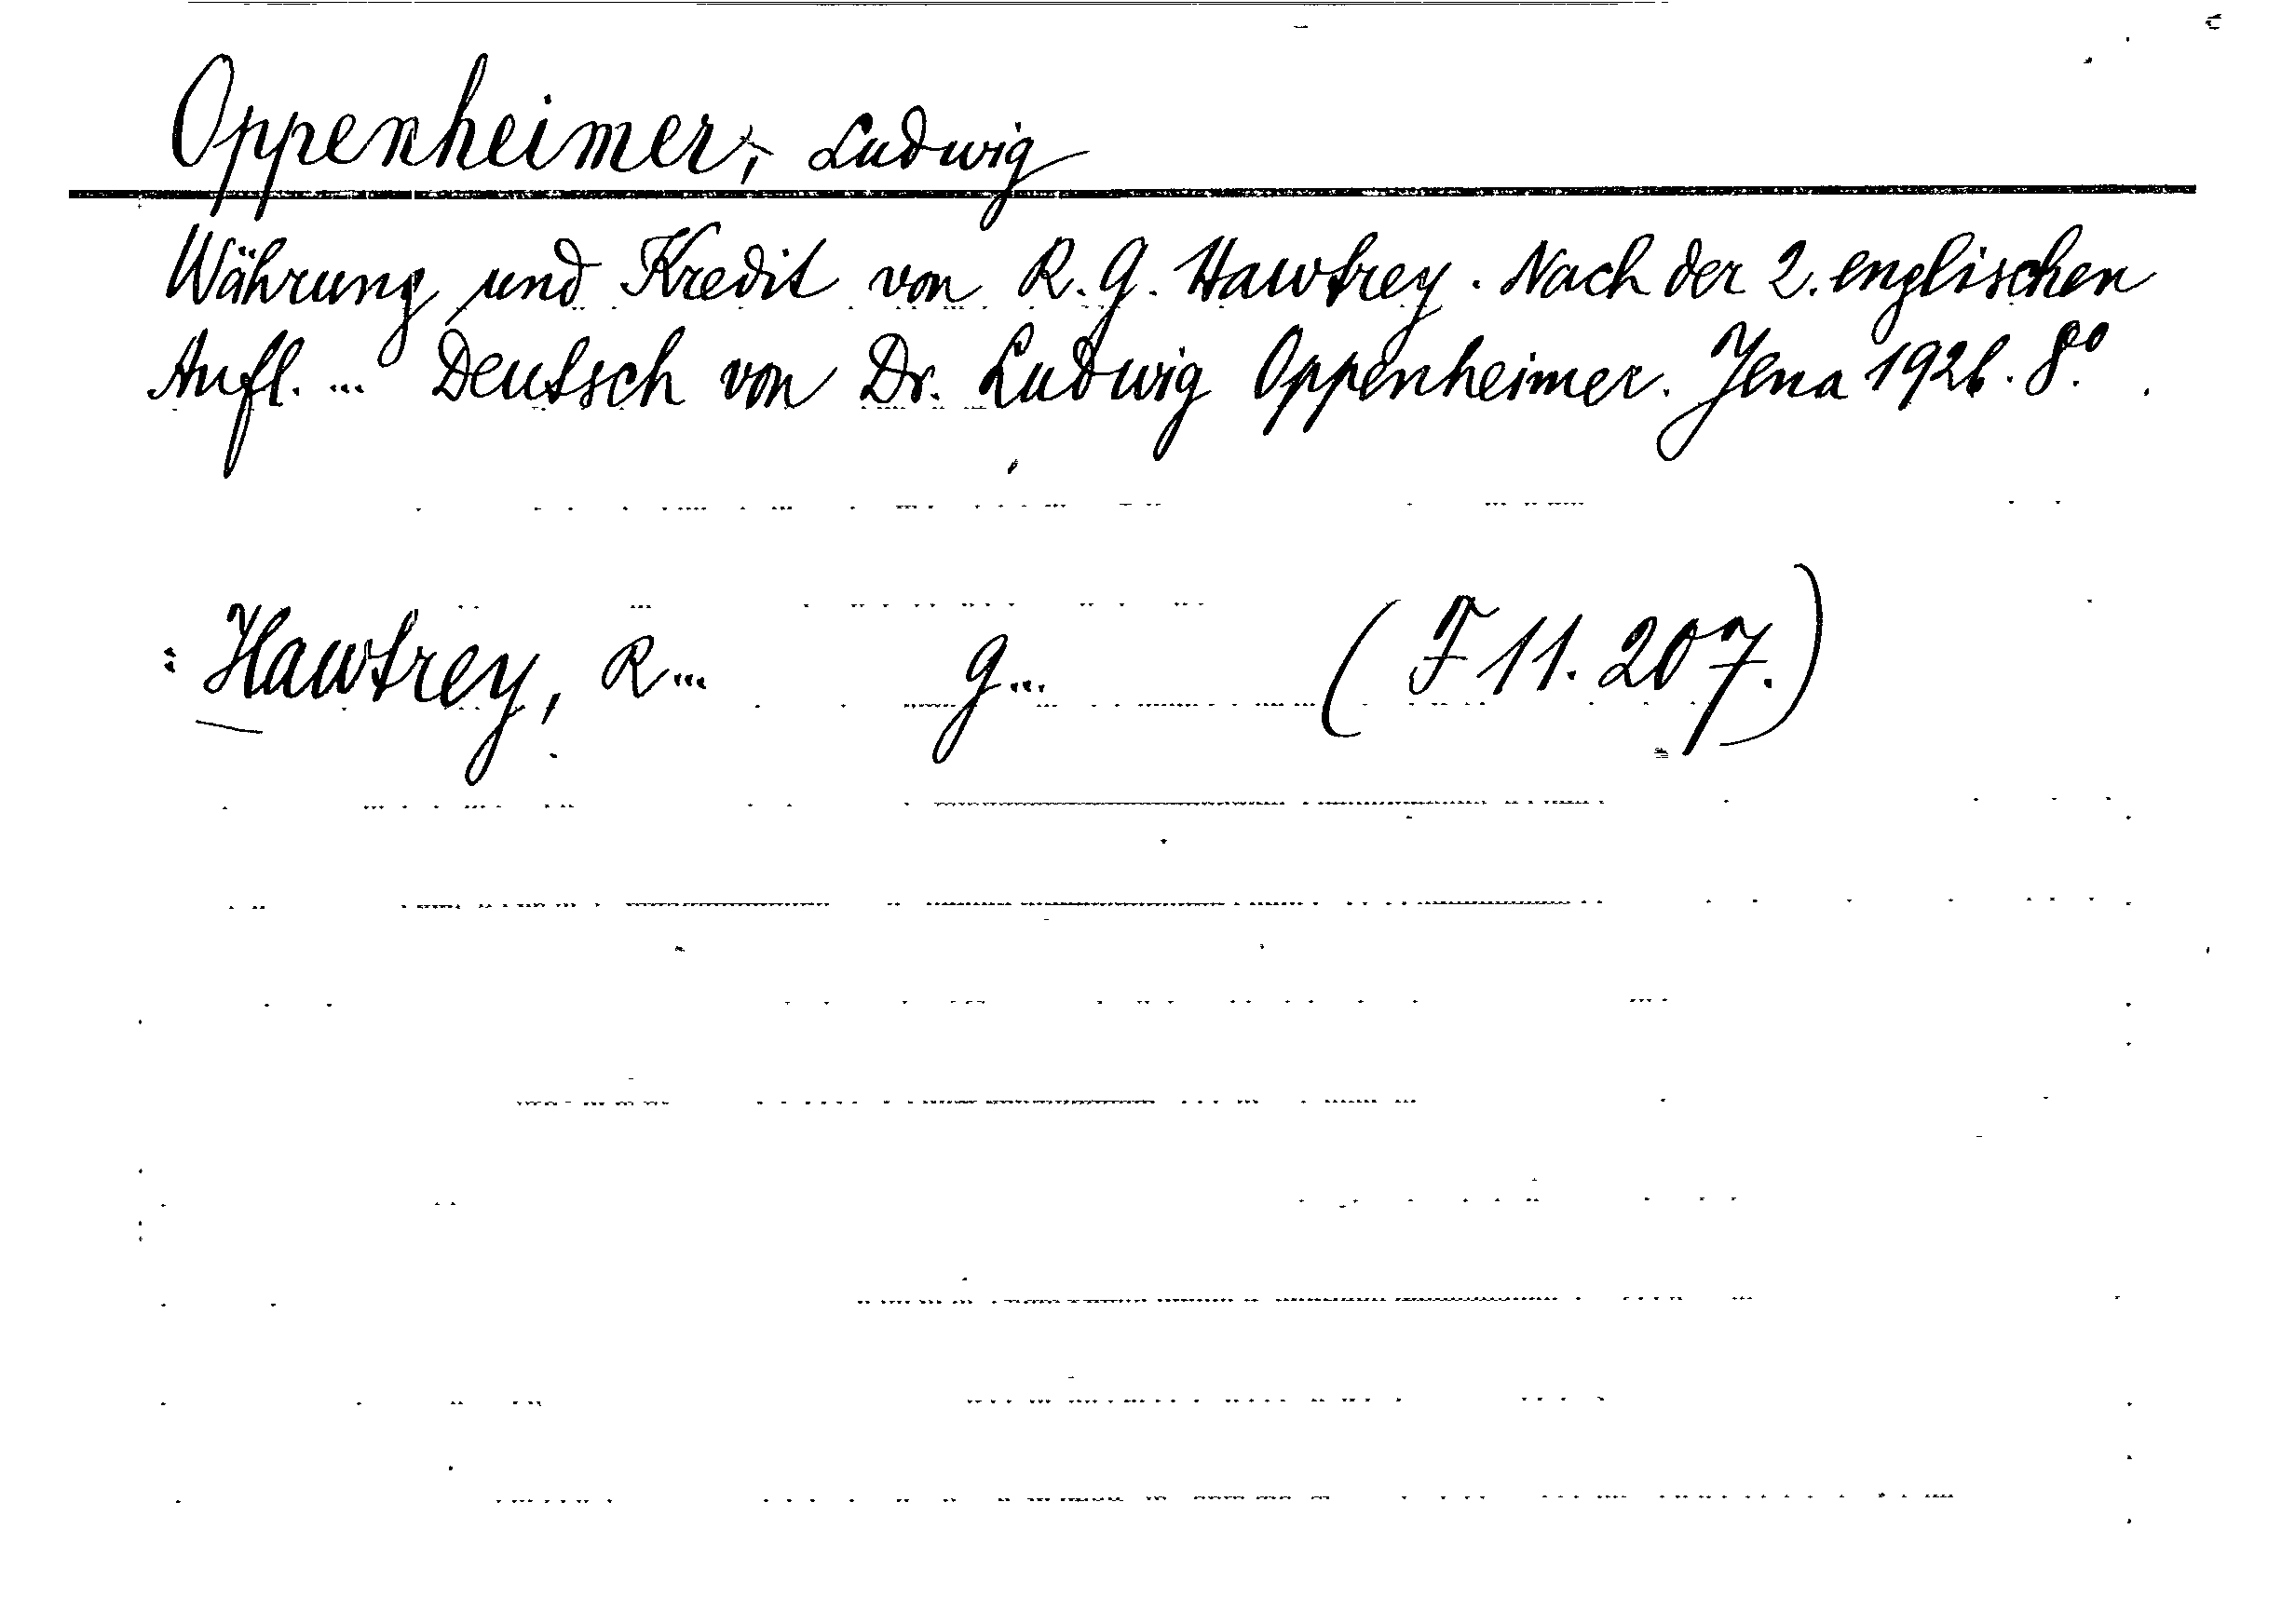 Oppenheimer, Ludwig
Währung und Kredit von R. G. Hawtrey. Nach der 2. englischen
Aufl. ... Deutsch von Dr. Ludwig Oppenheimer. Jena 1926. 8°.
: Hawtrey, R... G... (F 11. 207.)